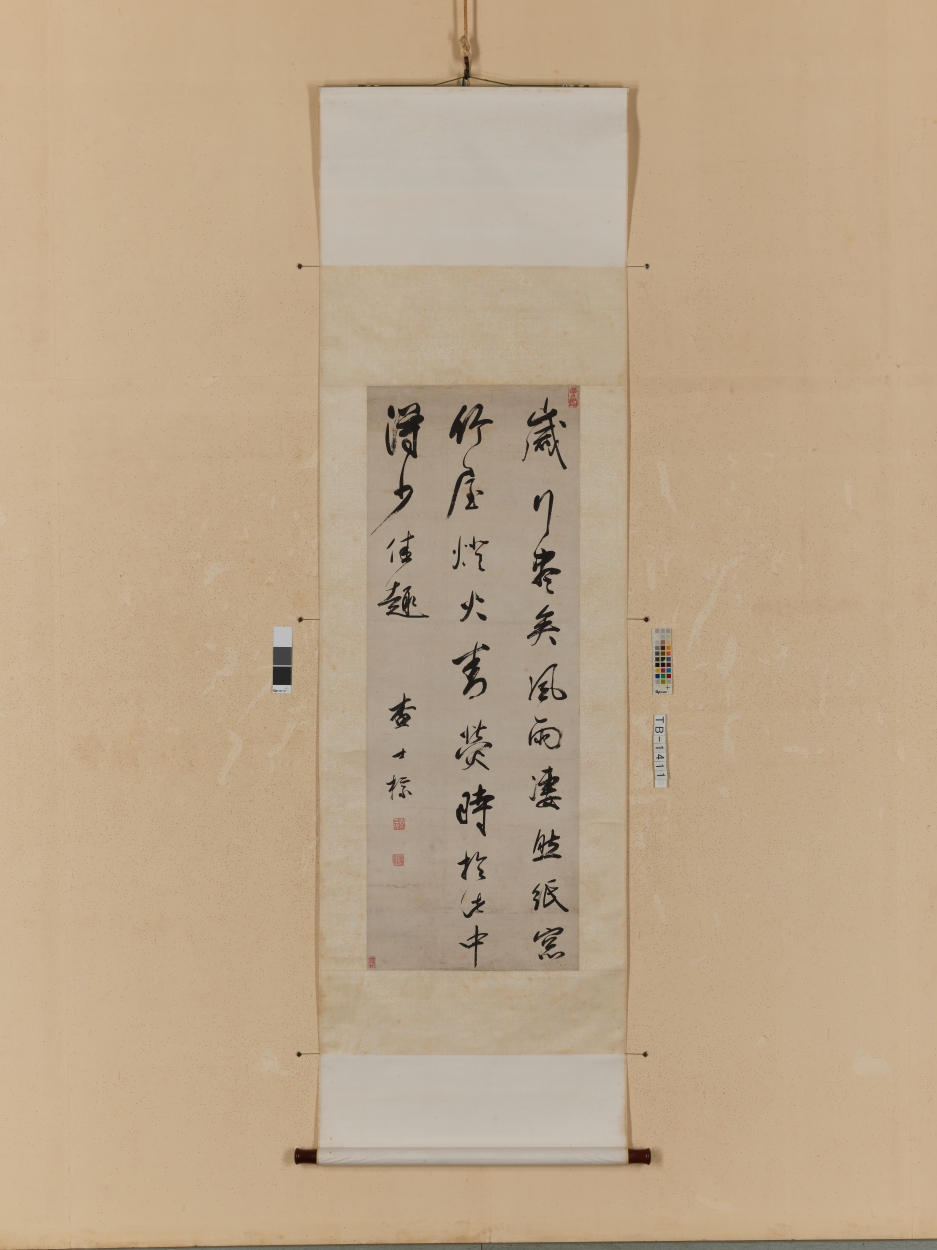 歲行盡矣風雨凄然紙窓
竹屋燈火青熒時於此中
得少佳趣
查士標
TB-1411